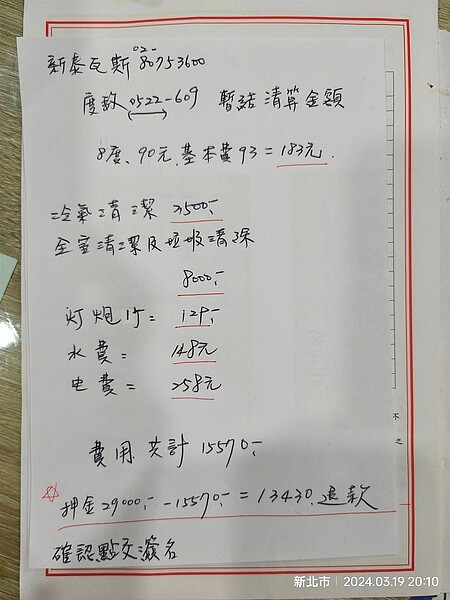 02-
新泰瓦斯 80753600
度數 0522-609 暫結清算金額
8度、90元.基本費93=183元.
冷氣清潔
全室清潔及垃圾清除
8000.-
灯炮1个= 129.-
水費= 148元
电費= 258元
費用共計 15570.-
押金29000.- -15570.- =13430.退款
確認點交簽名
新北市 | 2024.03.19 20:10